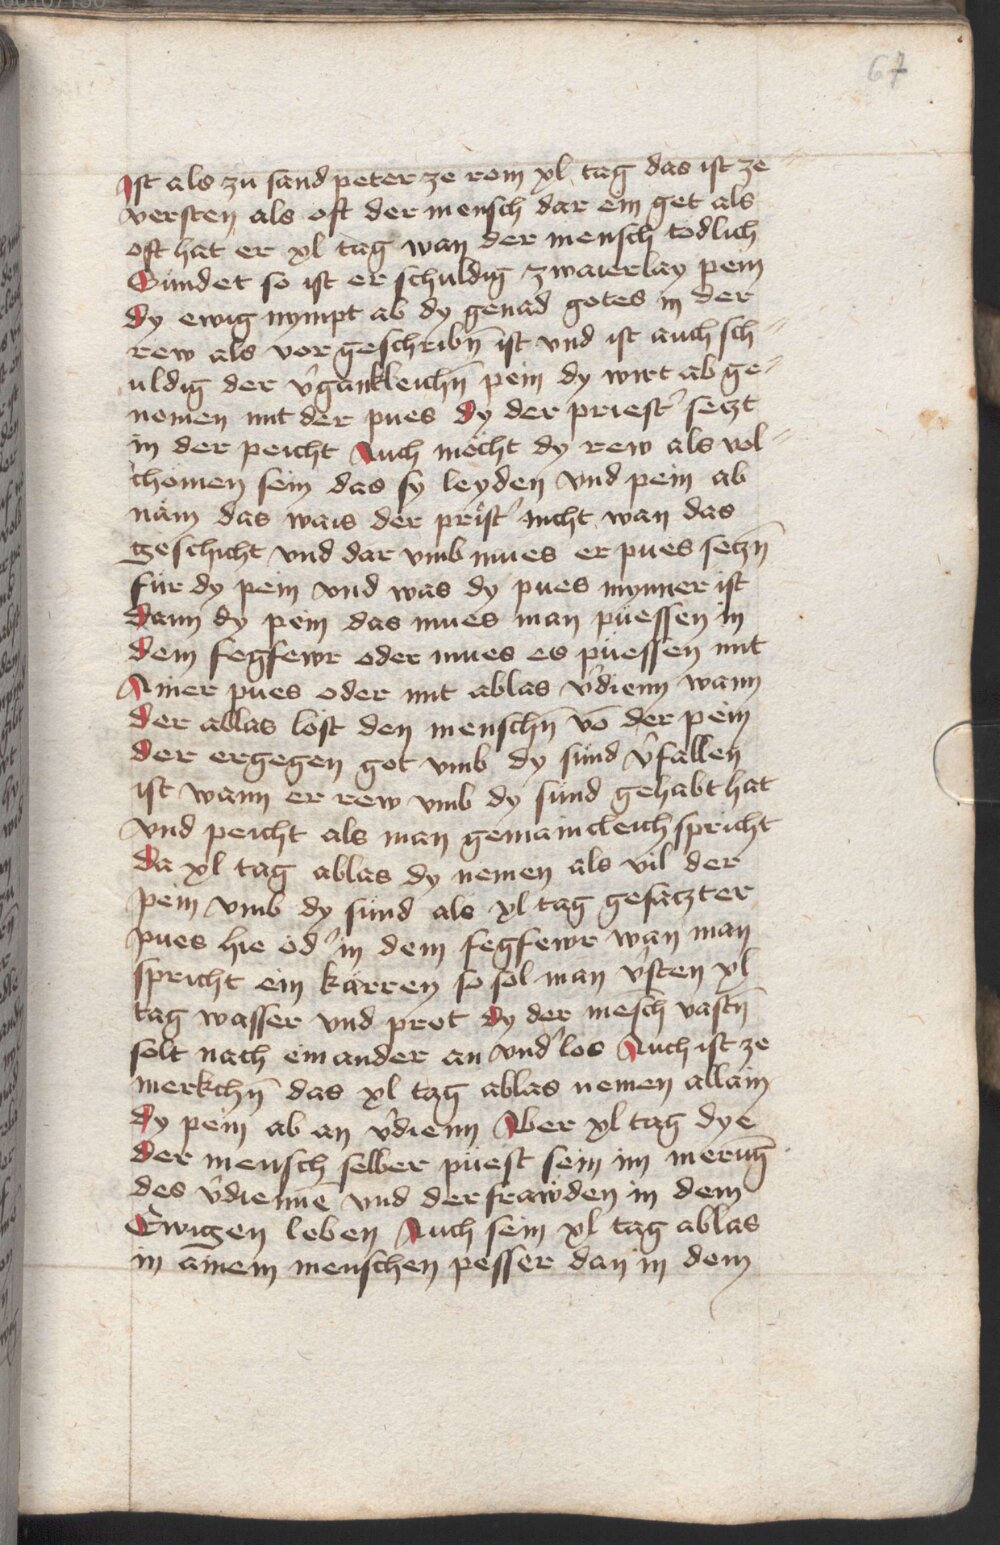 67
Ist als zu sand peter ze rom xl tag das ist ze
versten als oft der mensch dar ein get als
oft hat er xl tag wan der mensch tödlich
Sündet so ist er schuldig zwaierlay pein
dy ewig nympt ab dy genad gotes in der
rew als vor geschribn̄ ist vnd ist auch sch⸗
uldig der v̉gankleichn̄ pein dy wirt ab ge⸗
nomen mit der pues Dy der priest̉ setzt
in der peicht Auch möcht dy rew als vol⸗
chomen sein das sy leyden vnd pein ab
näm das wais der prist̉ nicht wan das
geschicht vnd dar vmb mues er pues setzn̄
für dy pein vnd was dy pues mynner ist
Dann dy pein das mues man püessen in
dem fegfewr oder mues es püessen mit
Ainer pues oder mit ablas v̉dienn wann
der ablas löst den menschn̄ vō der pein
Der er gegen got vmb dy sünd v̉fallen
ist wann er rew vmb dy sünd gehabt hat
vnd peicht als man gemaincleich spricht
Da xl tag ablas dy nemen als vil der
pein vmb dy sünd als xl tag gesatzter
pues hie od̉ in dem fegfewr wan man
spricht ein karren so sol man v̉sten xl
tag wasser vnd prot dy der mesch vastn̄
solt nach einander an vnd̉los Auch ist ze
merkchn̄ das xl tag ablas nemen allain
dy pein ab an v̉dienn Aber xl tag dye
der mensch selber püest sein im merūg
des v̉dienne vnd der frawden in dem
Ewigen leben Auch sein xl tag ablas
in ainem menschen pesser dan in dem